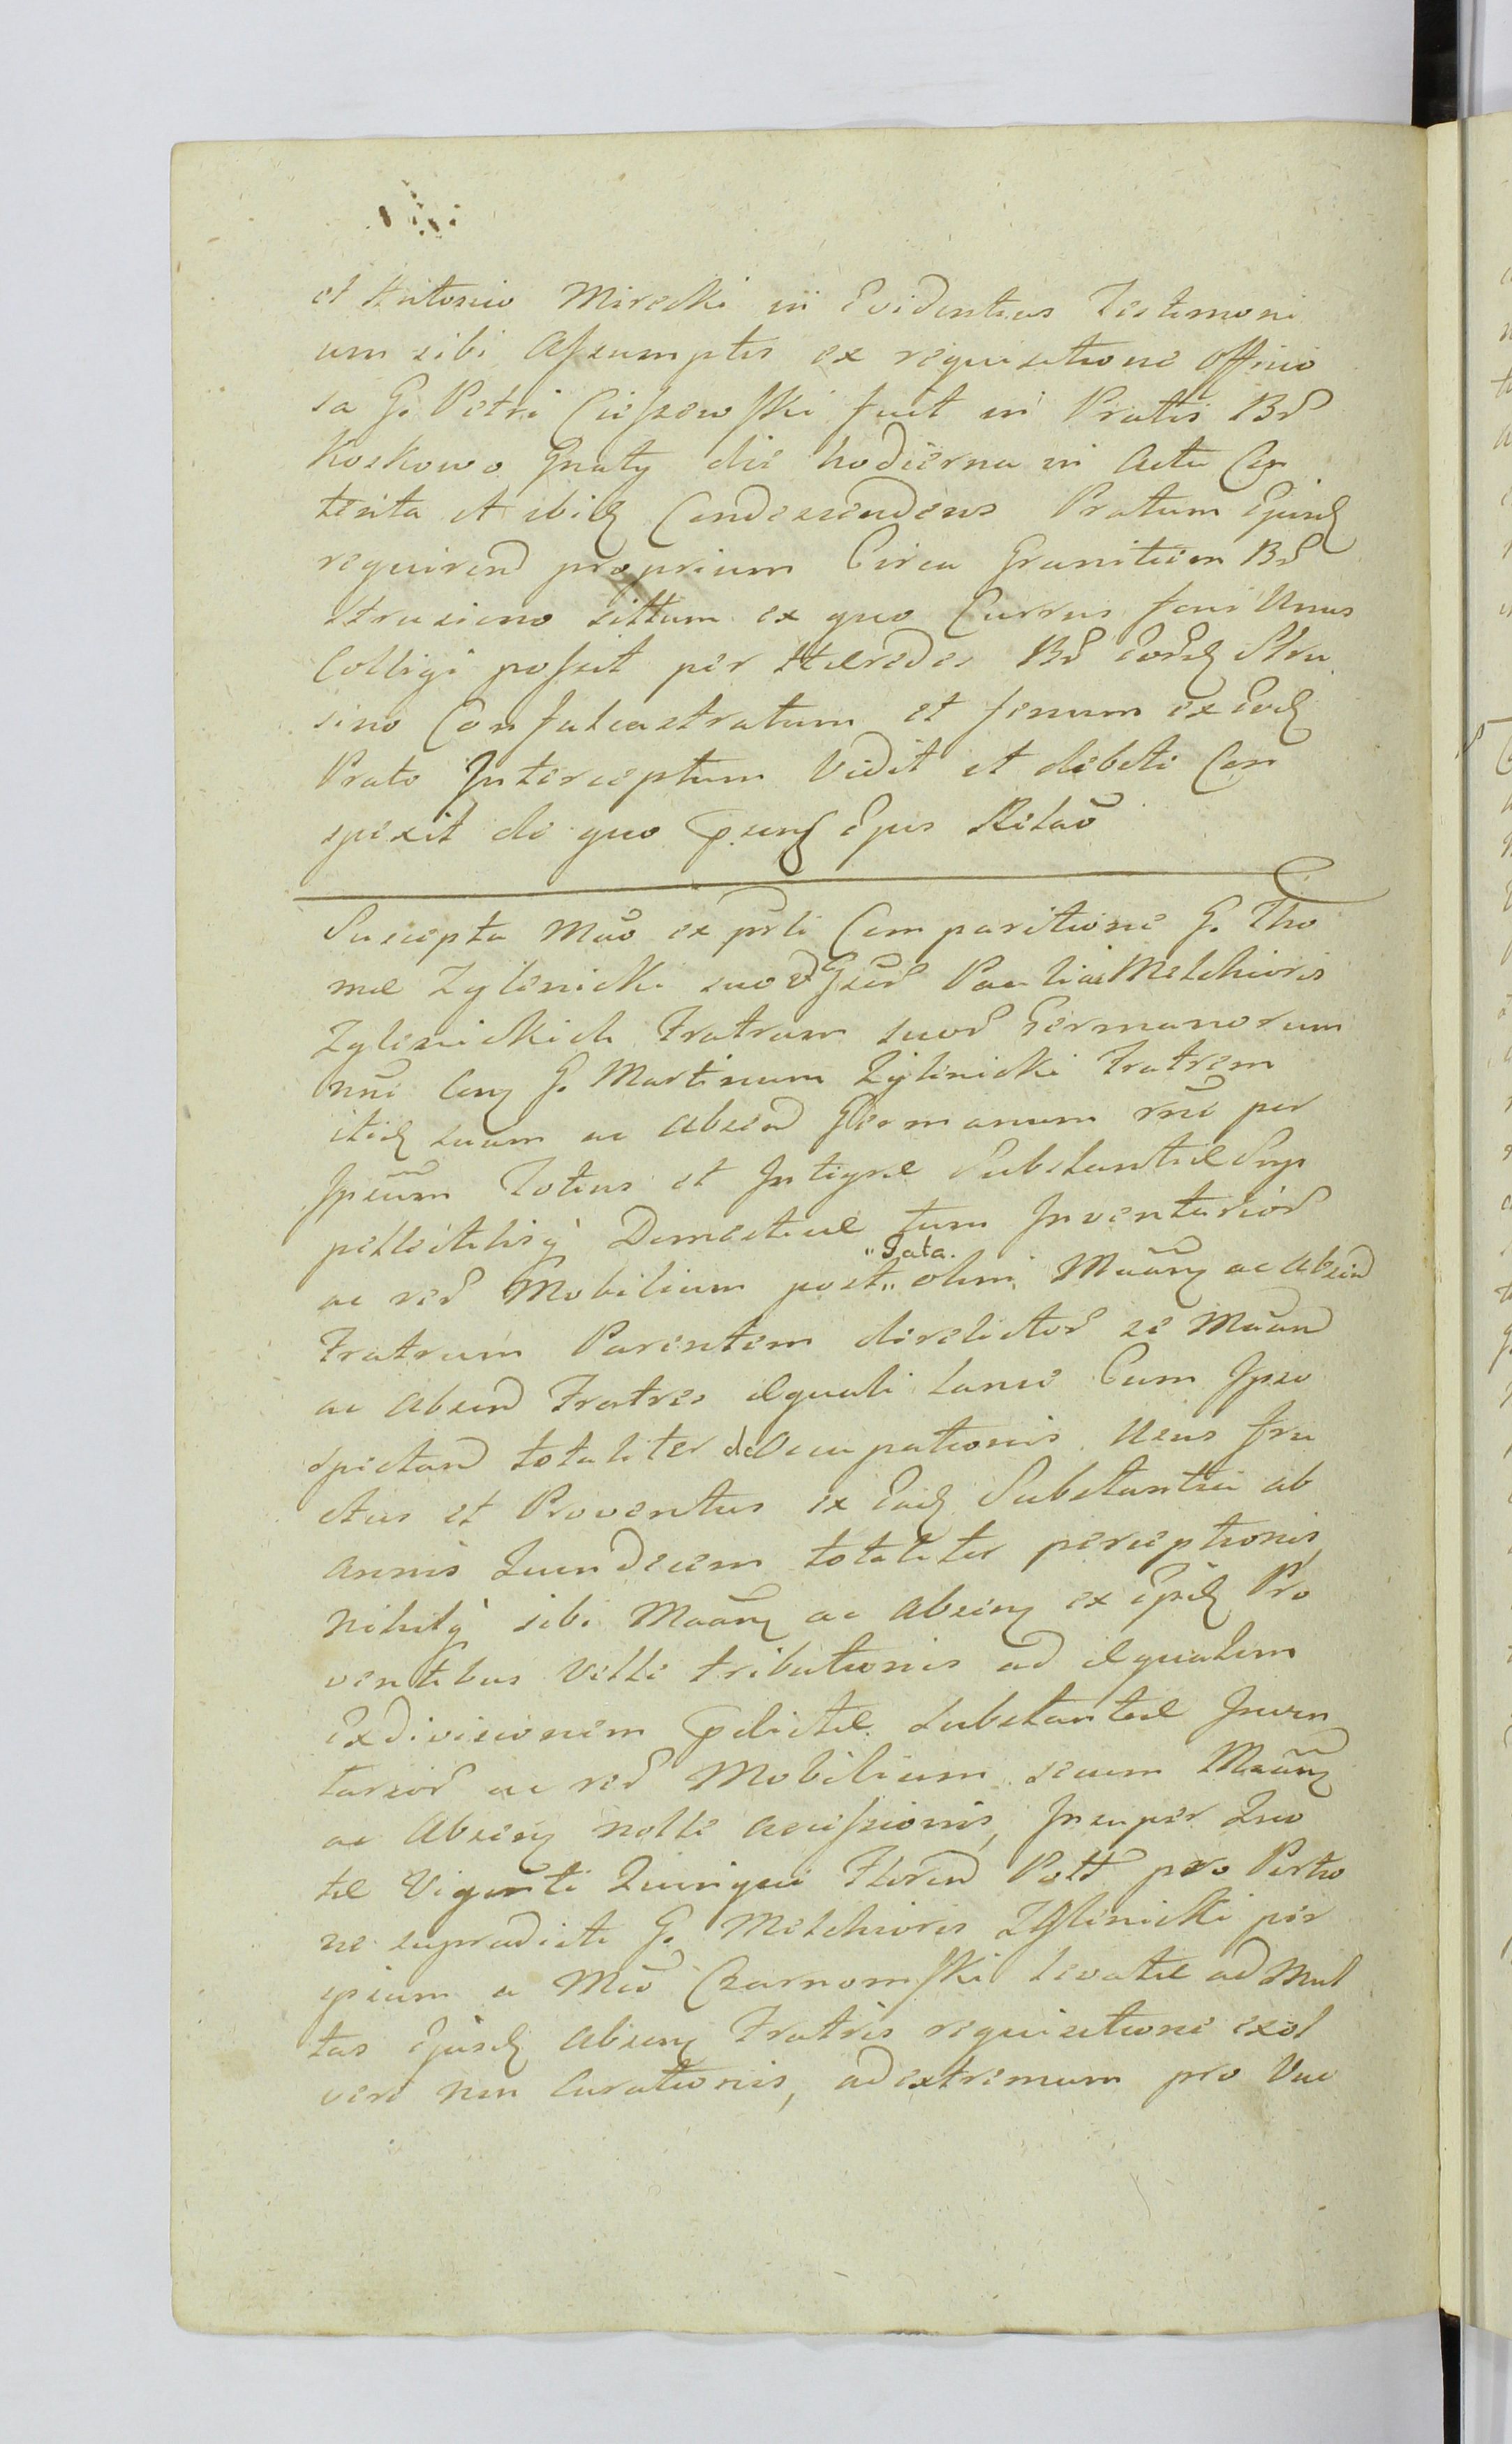 et Antonio Mirecki in Evidentius Testimoni
um sibi Assumptis ex requisitione Officio
sa G. Petri Cieszewski fuit in Pratis Bd
Koskowo Gnaty die hodierna in Actu Con
tenta et ibiq Condescendens Pratum Ejusq
requirend proprium Circa Granitiem Bd
Strusieno sittum ex quo Currus feni Unus
Colligi possit per Hæredes Bd Eordq Stru
sino Confalcastratum et fenum ex Eodq
Prato Interceptum Vidit et debete Con
spexit de quo Ejus Relaõ
Suscepta Mão ex prli Comparitione G. Tho
mæ Zglenicki suo et Gsõr Pauli ac Melchioris
Zglenickich Fratrum suor Germanorum
nñe Conq G. Martinum Zglinicki Fratrem
itidq suum ac absend Germanum rñe per
Ipsum Totius et Integræ Substantiæ Sup
pellectilisq Domesticæ tum Inventarior
ac rer Mobilium post " Fata. " olim Mãanq ac absend
Fratrum Parentem derelictor se Mãand
ac absend Fratres æquali lance Cum Ipso
spectand totaliter de Occupationis Usus fru
ctus et Proventus ex Eadq Substantia ab
annis Quindecem totaliter perceptionis
nihilq sibi Mãanq ac absenq ex Ipsq Pro
ventibus Velle tributionis ad æqualem
Exdivisionem substantiæ Inven
tarior ac rer Mobilium secum Mãanq
ac absenq nolle accessionis, Insuper Quo
tæ Viginti Quinque Floren Poll pro Portio
ne supradicti G. Melchioris Zglinicki per
ipsum a Mco Czarnomski levatæ ad Mul
tas Ejusdq absenq Fratris requisitione exol
vere non Curationis, ad extremum pro Vac